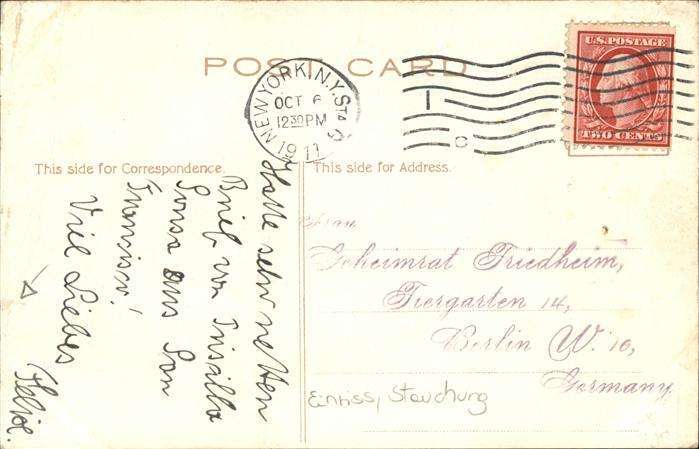 POST CARD
NEW YORK, N.Y. Sta. C
OCT 6
12 30 PM
1911
1
C
U.S. POSTAGE
TWO CENTS
This side for Correspondence.
This side for Address.
Hatte sehr netten
Brief von
Sousa aus San
Francisco!
Viel Liebes
Felix.
Frau
Geheimrat Friedheim,
Tiergarten 14,
Berlin W. 10,
Germany.
Einriss, Stauchung